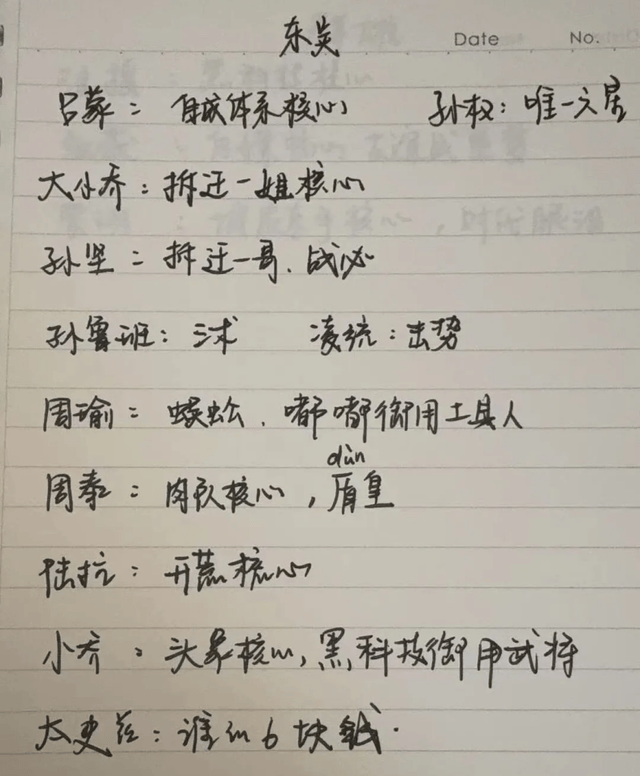 东吴 Date No.
吕蒙：自成体系核心 孙权：唯一六星
大小乔：拆迁一姐核心
孙坚：拆迁一哥、战必
孙鲁班：三求 凌统：击势
周瑜：蜈蚣、嘟嘟御用工具人
dùn
周泰：肉队核心，盾皇
陆抗：开荒核心
小乔：头象核心，黑科技御用武将
太史慈：谁的6块钱.